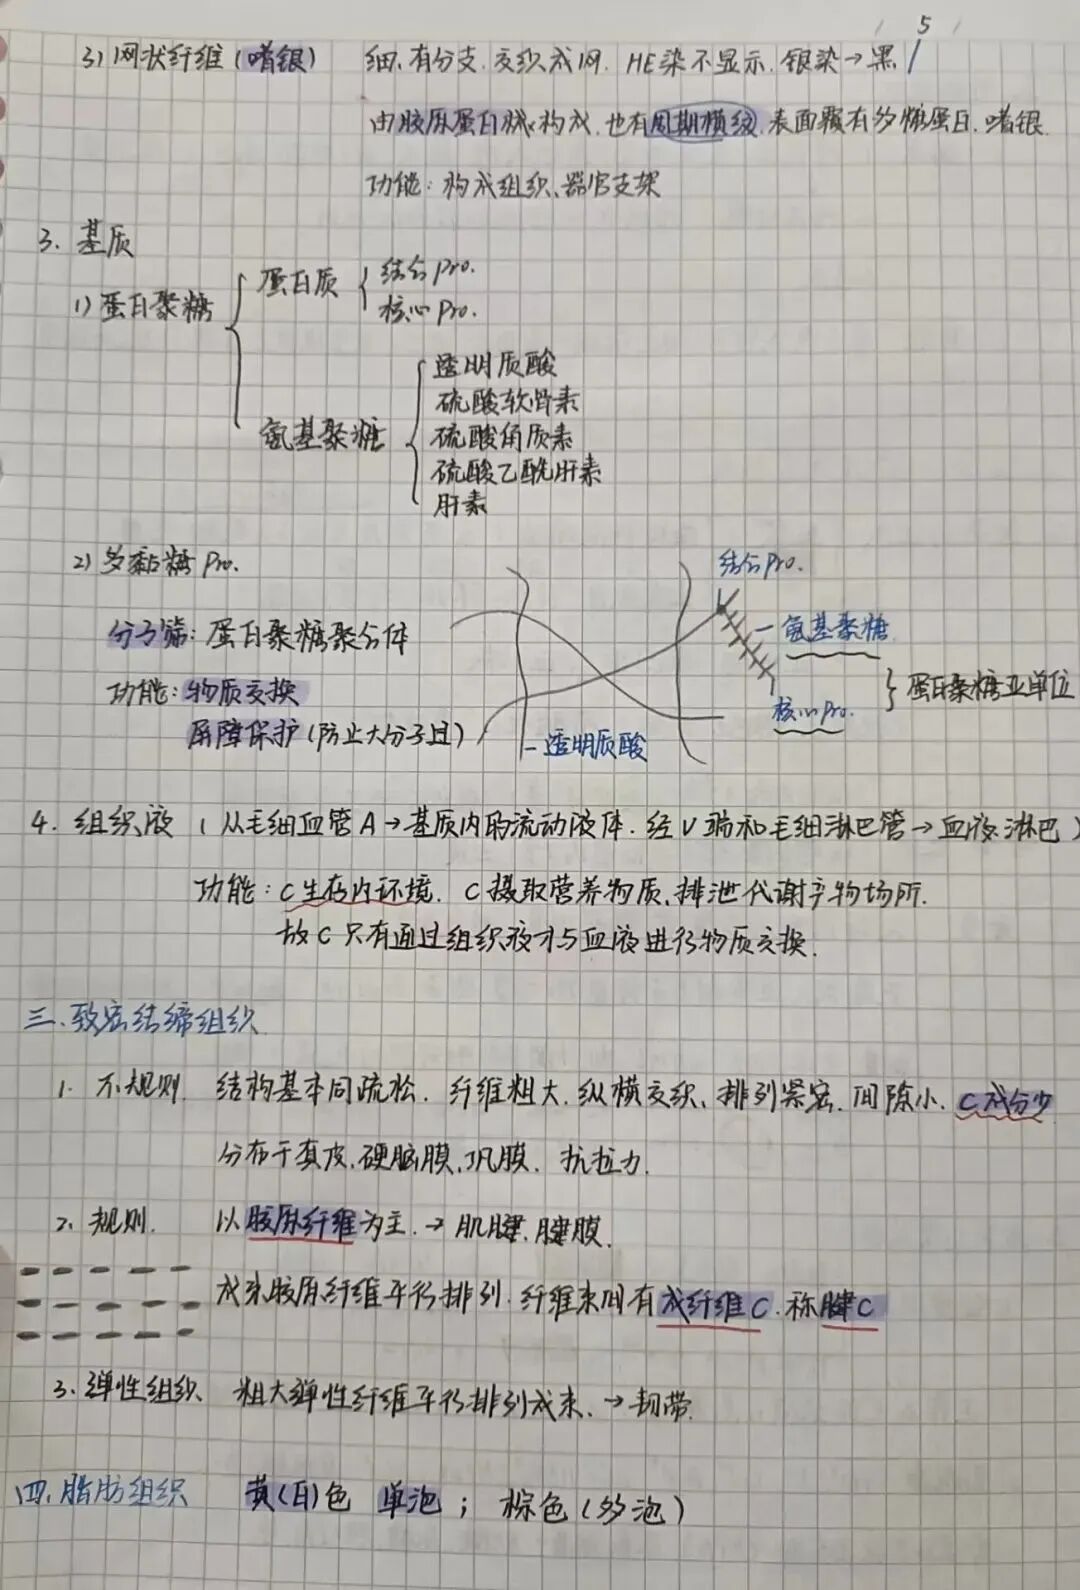 5
3) 网状纤维 (嗜银) 细、有分支、交织成网. HE染不显示、银染→黑
由胶原蛋白构成、也有周期横纹、表面颗有多糖蛋白、嗜银.
功能: 构成组织、器官支架
3. 基质
1) 蛋白聚糖
蛋白质
结合 pro.
核心 pro.
氨基聚糖
透明质酸
硫酸软骨素
硫酸角质素
硫酸乙酰肝素
肝素
2) 多黏糖 pro.
分子筛: 蛋白聚糖聚合体
功能: 物质交换
屏障保护 (防止大分子过)
结合 pro.
氨基聚糖
核心 pro.
蛋白聚糖亚单位
透明质酸
4. 组织液 ( 从毛细血管A→基质内的流动液体. 经V端和毛细淋巴管→血液.淋巴 )
功能: C生存内环境. C摄取营养物质、排泄代谢产物场所.
故C只有通过组织液才与血液进行物质交换.
三. 致密结缔组织
1. 不规则. 结构基本同疏松. 纤维粗大、纵横交织、排列紧密、间隙小、C成分少
分布于真皮、硬脑膜、巩膜. 抗拉力.
2. 规则. 以胶原纤维为主. → 肌腱、腱膜.
成束胶原纤维平行排列. 纤维束间有成纤维C. 称腱C
3. 弹性组织. 粗大弹性纤维平行排列成束. → 韧带.
四. 脂肪组织 黄(白)色 单泡 ; 棕色 (多泡)